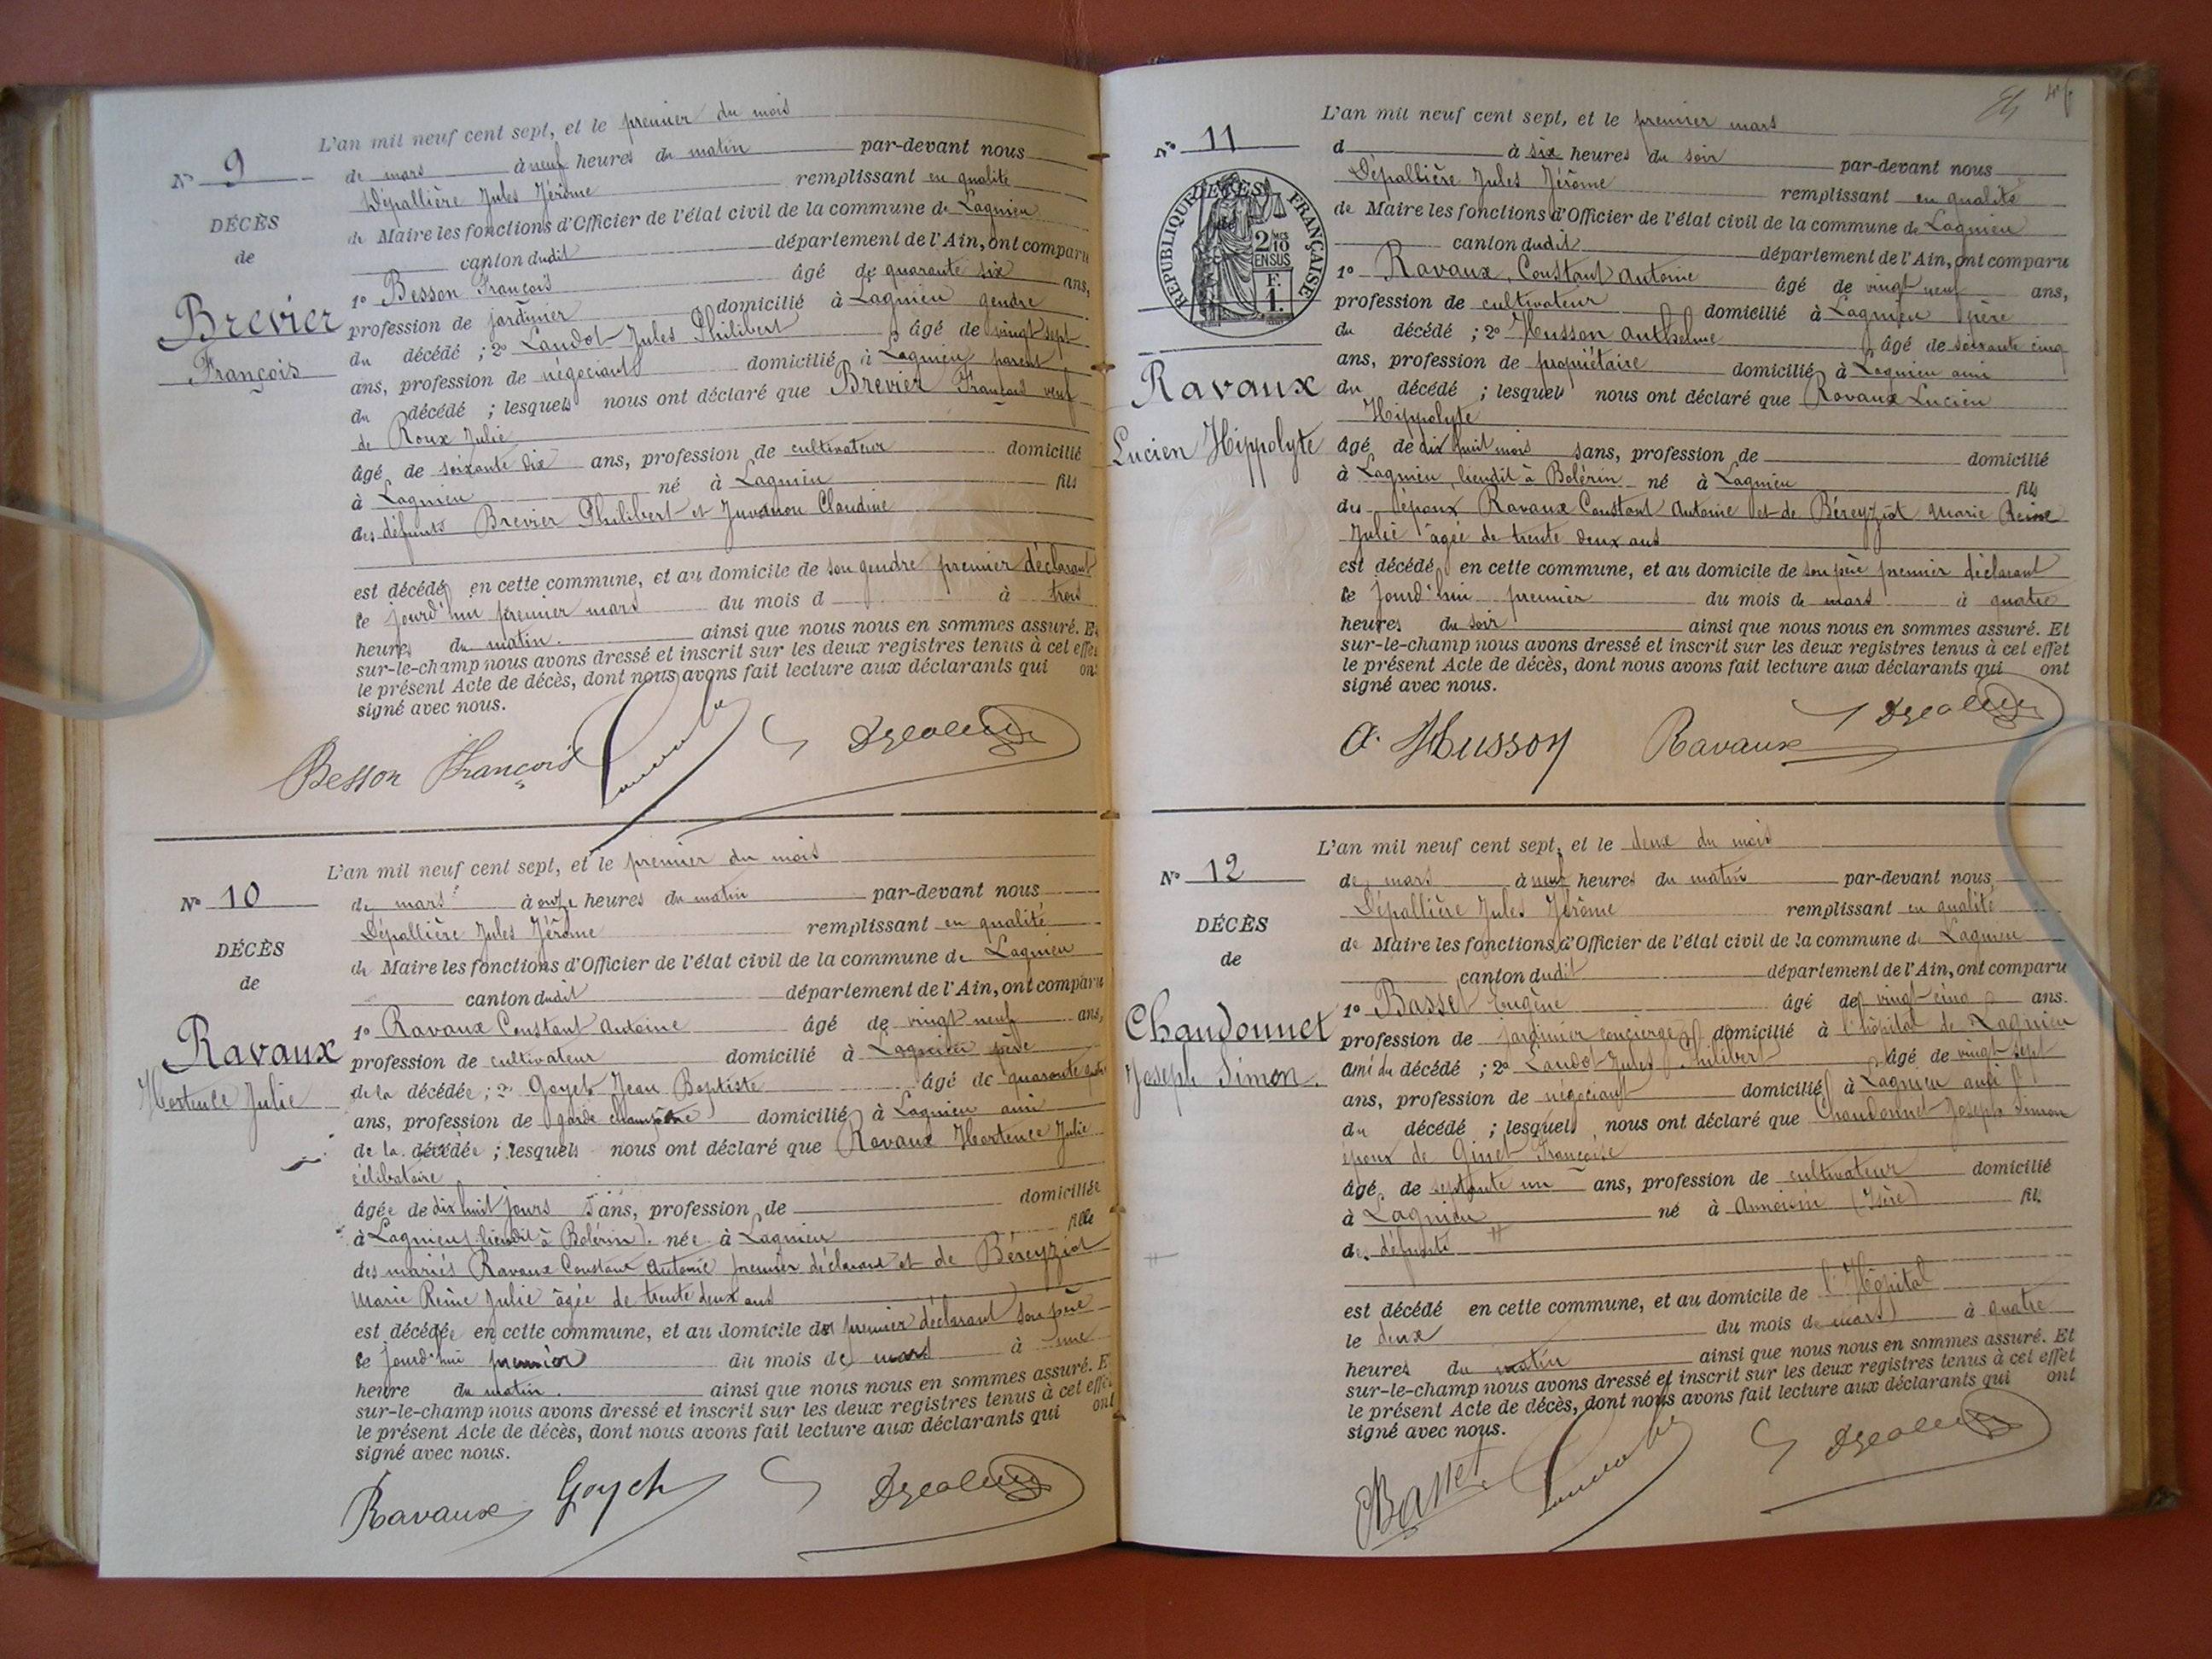 L'an mil neuf cent sept, et le premier du mois
N° 9
de mars à neuf heures du matin par-devant nous
Dépallière Jules Jérôme remplissant en qualité
DÉCÈS
de Maire les fonctions d'Officier de l'état civil de la commune de Lagnieu
de
canton dudit département de l'Ain, ont comparu
1° Besson François âgé de quarante six ans,
Brevier
profession de jardinier domicilié à Lagnieu gendre
François
du décédé ; 2° Laudot Jules Philibert âgé de vingt sept
ans, profession de négociant domicilié à Lagnieu parent
du décédé ; lesquels nous ont déclaré que Brevier François veuf
de Roux Julie
âgé de soixante dix ans, profession de cultivateur domicilié
à Lagnieu né à Lagnieu fils
des défunts Brevier Philibert et Juvanon Claudine
est décédé en cette commune, et au domicile de son gendre premier déclarant
le jourd'hui premier mars du mois d à trois
heures du matin. ainsi que nous nous en sommes assuré. Et
sur-le-champ nous avons dressé et inscrit sur les deux registres tenus à cet effet
le présent Acte de décès, dont nous avons fait lecture aux déclarants qui ont
signé avec nous.
Besson François
L'an mil neuf cent sept, et le premier du mois
N° 10
de mars à onze heures du matin par-devant nous
Dépallière Jules Jérôme remplissant en qualité
DÉCÈS
de Maire les fonctions d'Officier de l'état civil de la commune de Lagnieu
de
canton dudit département de l'Ain, ont comparu
1° Ravaux Constant Antoine âgé de vingt neuf ans,
Ravaux
profession de cultivateur domicilié à Lagnieu père
Hortence Julie
de la décédée ; 2° Goyet Jean Baptiste âgé de quarante
ans, profession de garde champêtre domicilié à Lagnieu ami
de la décédée ; lesquels nous ont déclaré que Ravaux Hortence Julie
célibataire
âgée de dix huit jours sans, profession de domiciliée
à Lagnieu (lieudit à Bolérin) née à Lagnieu fille
des mariés Ravaux Constant Antoine premier déclarant et de Béreyziat
Marie Reine Julie âgée de trente deux ans
est décédée en cette commune, et au domicile du premier déclarant son père
le jourd'hui premier du mois de mars à une
heure du matin. ainsi que nous nous en sommes assuré. Et
sur-le-champ nous avons dressé et inscrit sur les deux registres tenus à cet effet
le présent Acte de décès, dont nous avons fait lecture aux déclarants qui ont
signé avec nous.
Ravaux
L'an mil neuf cent sept, et le premier mars
N° 11
d à six heures du soir par-devant nous
Dépallière Jules Jérôme remplissant en qualité
RÉPUBLIQUE FRANÇAISE
DÉCÈS
2/10 EN SUS
F. 1.
de Maire les fonctions d'Officier de l'état civil de la commune de Lagnieu
canton dudit département de l'Ain, ont comparu
1° Ravaux, Constant Antoine âgé de vingt neuf ans,
profession de cultivateur domicilié à Lagnieu père
du décédé ; 2° Husson Anthelme âgé de soixante cinq
ans, profession de propriétaire domicilié à Lagnieu ami
Ravaux
du décédé ; lesquels nous ont déclaré que Ravaux Lucien
Hippolyte
Lucien Hippolyte
âgé de dix huit mois sans, profession de domicilié
à Lagnieu, lieudit à Bolérin né à Lagnieu fils
des époux Ravaux Constant Antoine et de Béreyziat Marie Reine
Julie âgée de trente deux ans
est décédé en cette commune, et au domicile de son père premier déclarant
le jourd'hui premier du mois de mars à quatre
heures du soir ainsi que nous nous en sommes assuré. Et
sur-le-champ nous avons dressé et inscrit sur les deux registres tenus à cet effet
le présent Acte de décès, dont nous avons fait lecture aux déclarants qui ont
signé avec nous.
A. Husson Ravaux
L'an mil neuf cent sept, et le deux du mois
N° 12
de mars à neuf heures du matin par-devant nous
Dépallière Jules Jérôme remplissant en qualité
DÉCÈS
de Maire les fonctions d'Officier de l'état civil de la commune de Lagnieu
de
canton dudit département de l'Ain, ont comparu
1° Basset Eugène âgé de vingt cinq ans.
Chaudonnet
profession de jardinier concierge domicilié à l'hôpital de Lagnieu
Joseph Simon.
ami du décédé ; 2° Laudot Jules Philibert âgé de vingt sept
ans, profession de négociant domicilié à Lagnieu ami
du décédé ; lesquels nous ont déclaré que Chaudonnet Joseph Simon
époux de Ginet Françoise
âgé de septante un ans, profession de cultivateur domicilié
à Lagnieu né à Annoisin (Isère) fils
de défunts
est décédé en cette commune, et au domicile de l'Hôpital
le deux du mois de mars à quatre
heures du matin ainsi que nous nous en sommes assuré. Et
sur-le-champ nous avons dressé et inscrit sur les deux registres tenus à cet effet
le présent Acte de décès, dont nous avons fait lecture aux déclarants qui ont
signé avec nous.
EBasset